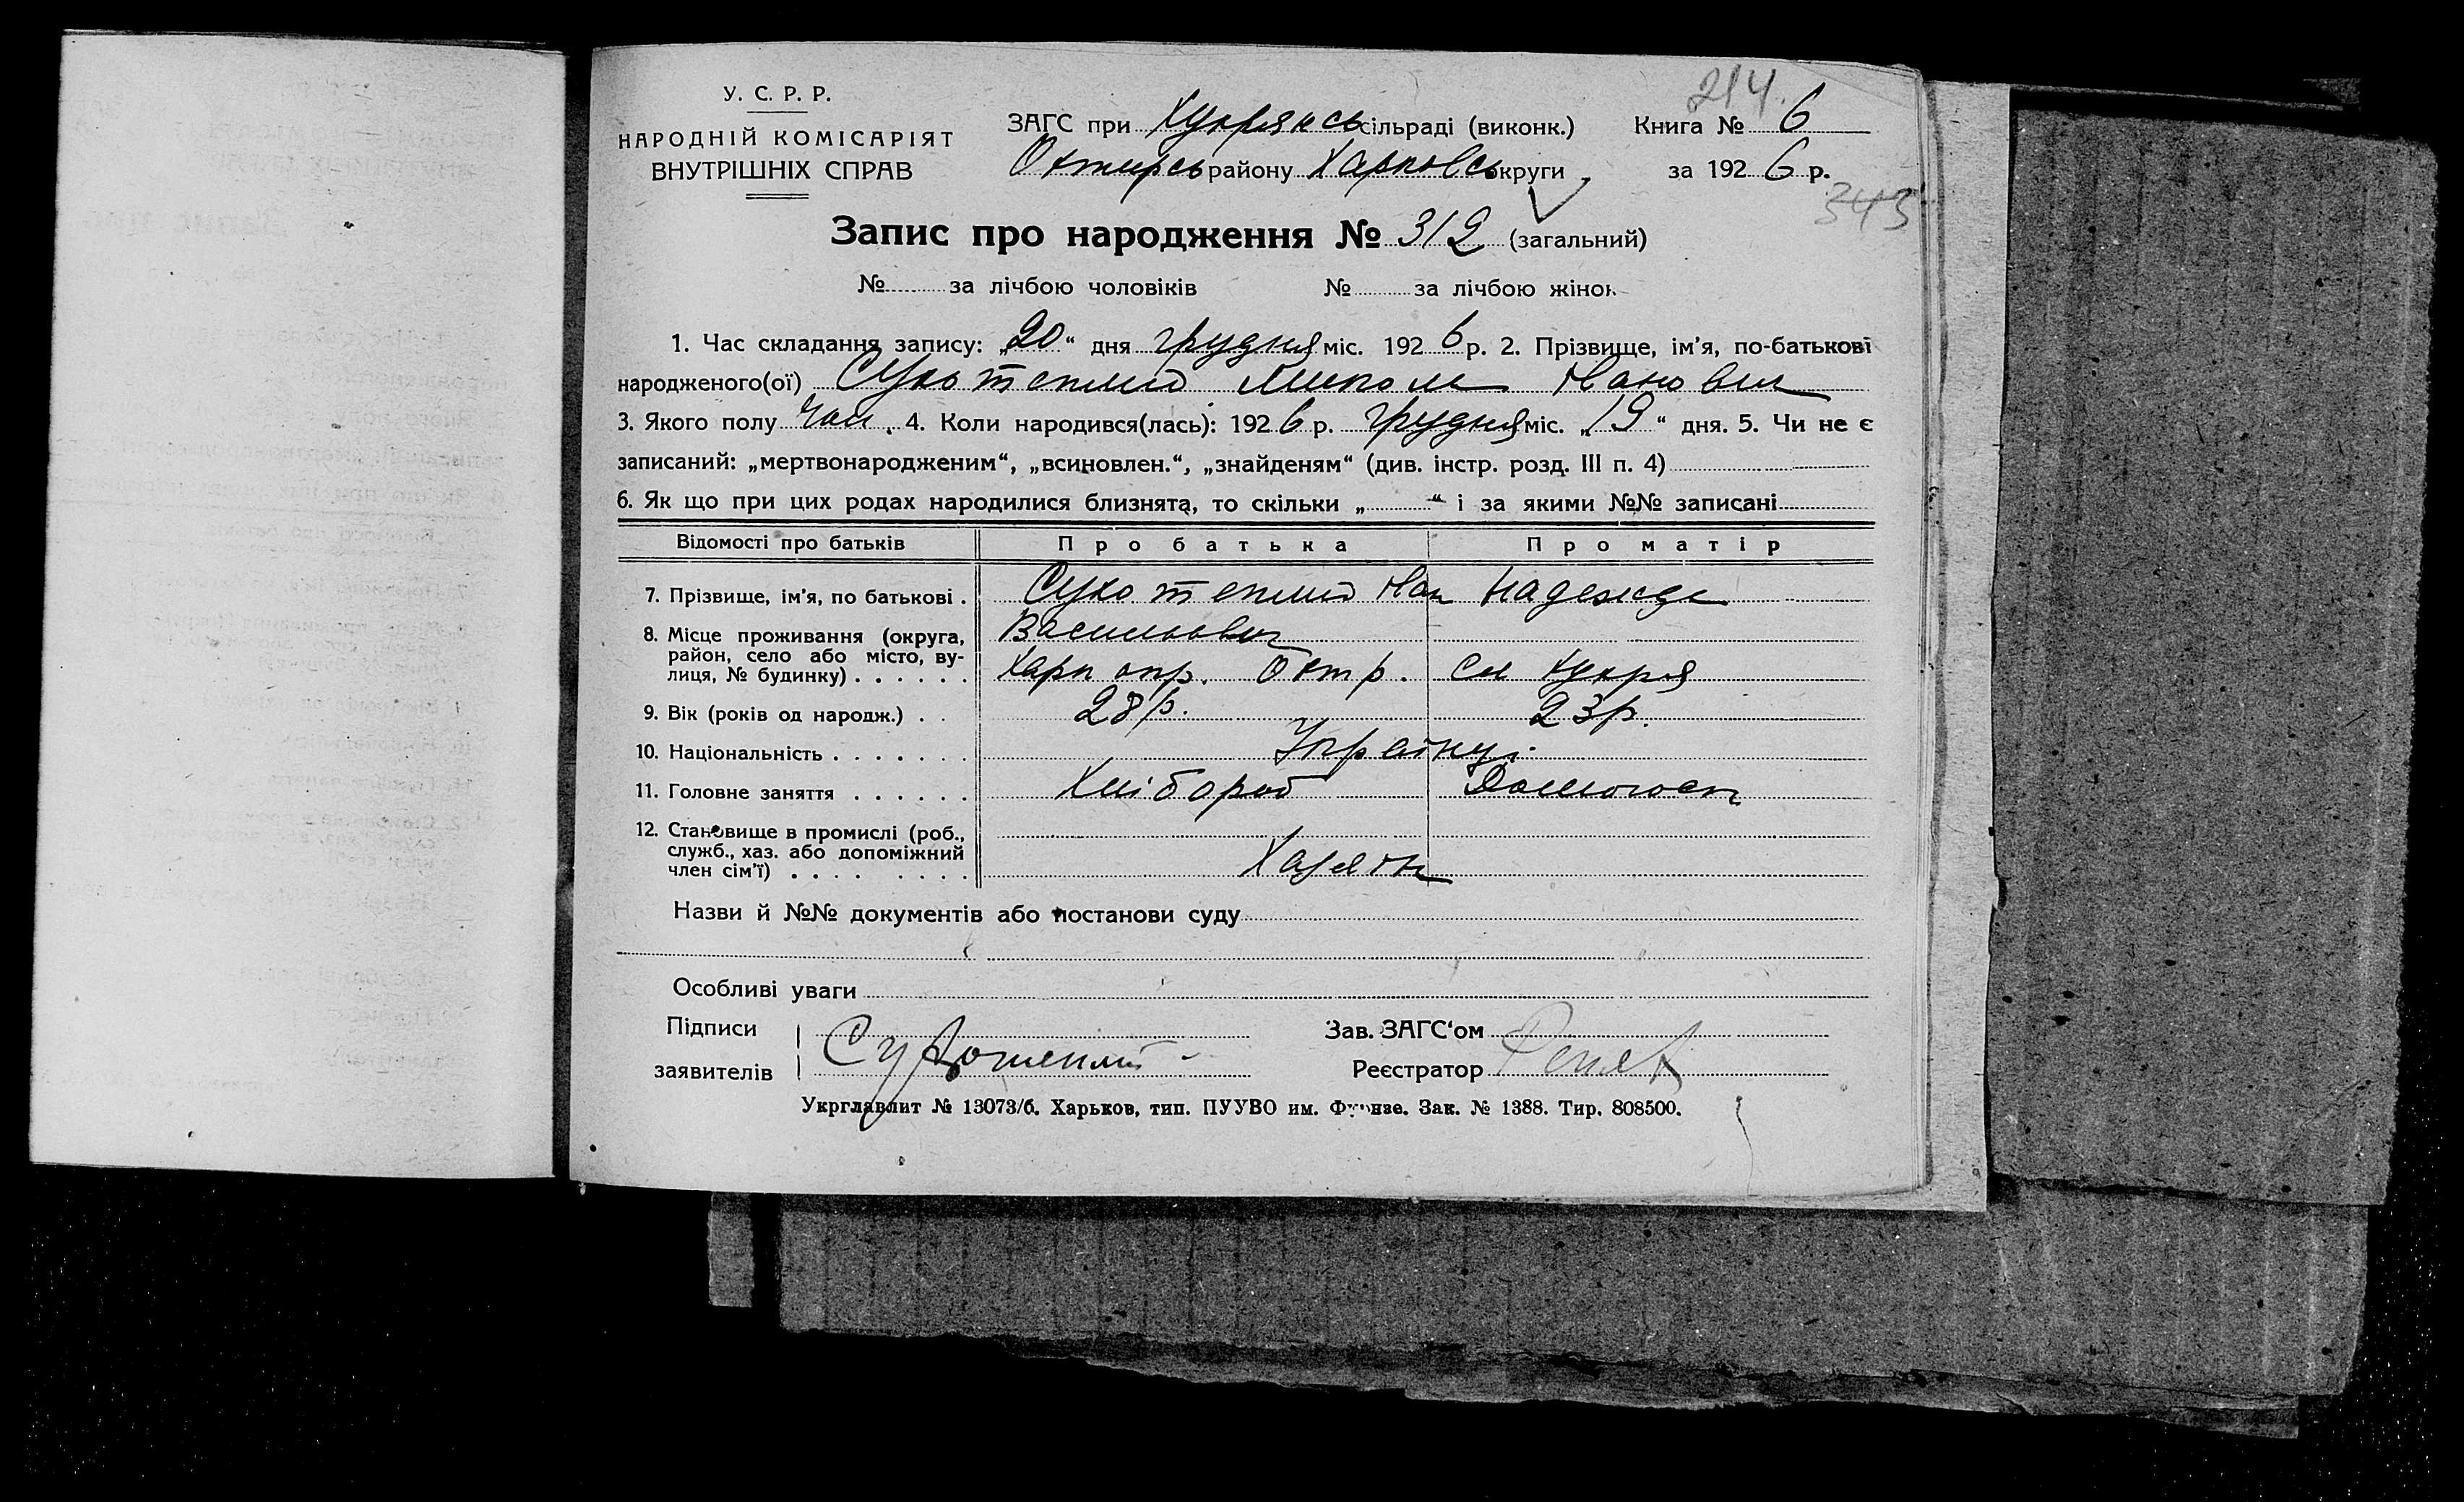 214.
У. С. Р. Р.
НАРОДНІЙ КОМІСАРІЯТ
ВНУТРІШНІХ СПРАВ
ЗАГС при Хухрянсь сільраді (виконк.) Книга № 6
Охтирсь району Харковсь округи за 1926 р.
343
Запис про народження № 312 (загальний)
№ за лічбою чоловіків № за лічбою жінок
1. Час складання запису: „20“ дня грудня міс. 1926 р. 2. Прізвище, ім’я, по-батькові
народженого(ої) Сухотеплий Микола Иванович
3. Якого полу чол. 4. Коли народився(лась): 1926 р. грудня міс. „19“ дня. 5. Чи не є
записаний: „мертвонародженим“, „всиновлен.“, „знайденям“ (див. інстр. розд. III п. 4)
6. Як що при цих родах народилися близнята, то скільки „ “ і за якими №№ записані
Відомості про батьків Про батька Про матір
7. Прізвище, ім’я, по батькові . Сухотеплий Иван Надежда
8. Місце проживання (округа, Васильович
район, село або місто, ву-
лиця, № будинку) . . . . . . Харк окр. Охт р. сл Хухря
9. Вік (років од народж.) . . 28 р. 23 р.
10. Національність . . . . . . . Українці
11. Головне заняття . . . . . . Хлібороб Домогосп
12. Становище в промислі (роб.,
служб., хаз. або допоміжний
член сім’ї) . . . . . . . . Хазяїн
Назви й №№ документів або постанови суду
Особливі уваги
Підписи Зав. ЗАГС‘ом
заявителів Сухотеплий Реєстратор
Укрглавлит № 13073/б. Харьков, тип. ПУУВО им. Фрунзе. Зак. № 1388. Тир. 808500.